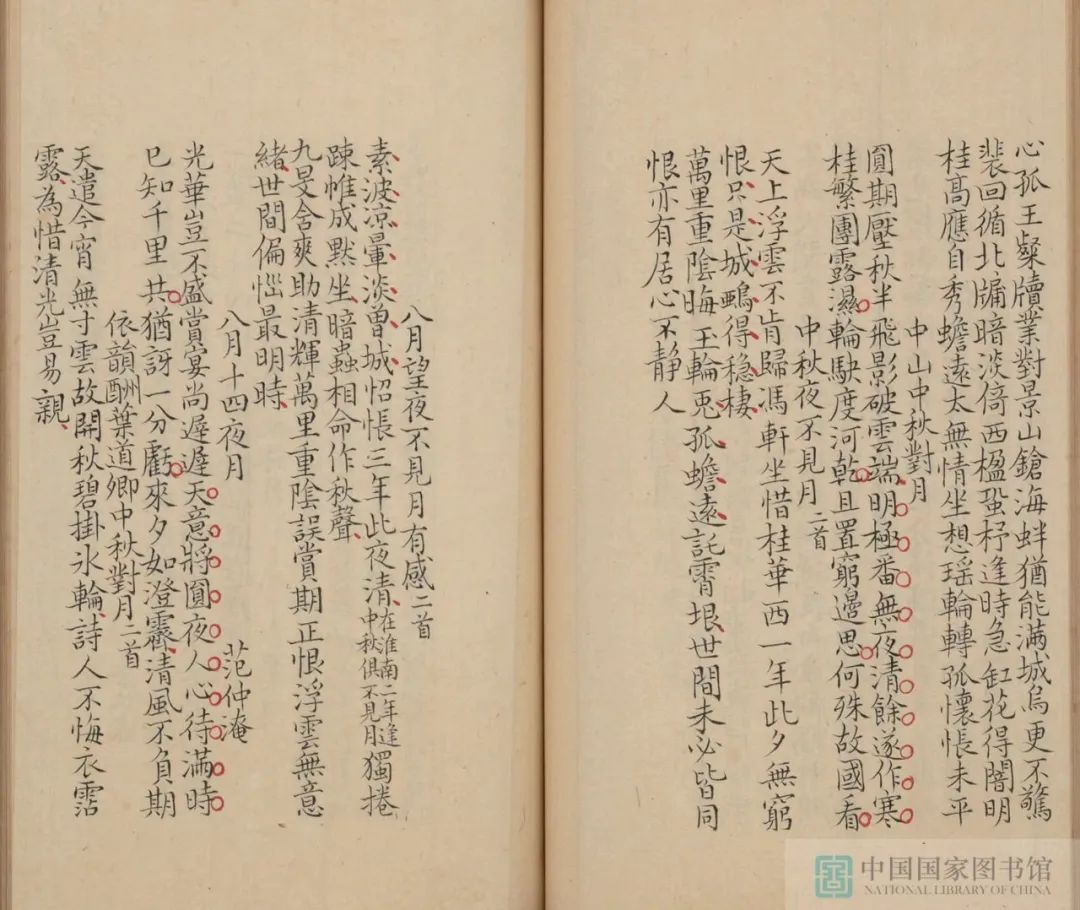 心孤王粲牘業對景山鎗海蚌猶能滿城烏更不驚
裴回循北牖暗淡倚西楹蛩杼逢時急缸花得闇明
桂高應自秀蟾遠太無情坐想瑶輪轉孤懷悵未平
中山中秋對月
圓期壓秋半飛影破雲端明極番無夜清餘遂作寒
桂繁團露濕輪駃度河乾且置窮邊思何殊故國看
中秋夜不見月二首
天上浮雲不肯歸馮軒坐惜桂華西一年此夕無窮
恨只是城鵶得穩棲
萬里重陰晦玉輪兎孤蟾遠託霄垠世間未必皆同
恨亦有居心不静人
八月望夜不見月有感二首
素波凉暈淡曾城怊悵三年此夜清在淮南二年逢中秋俱不見月獨捲
踈帷成黙坐暗蟲相命作秋聲
九旻含爽助清輝萬里重陰誤賞期正恨浮雲無意
緒世間偏惱最明時
八月十四夜月 范仲淹
光華豈不盛賞宴尚遲遲天意將圓夜人心待滿時
已知千里共猶訝一分虧來夕如澄霽清風不負期
依韻酬葉道卿中秋對月二首
天遣今宵無寸雲故開秋碧掛氷輪詩人不悔衣霑
露為惜清光豈易親
中国国家图书馆
NATIONAL LIBRARY OF CHINA